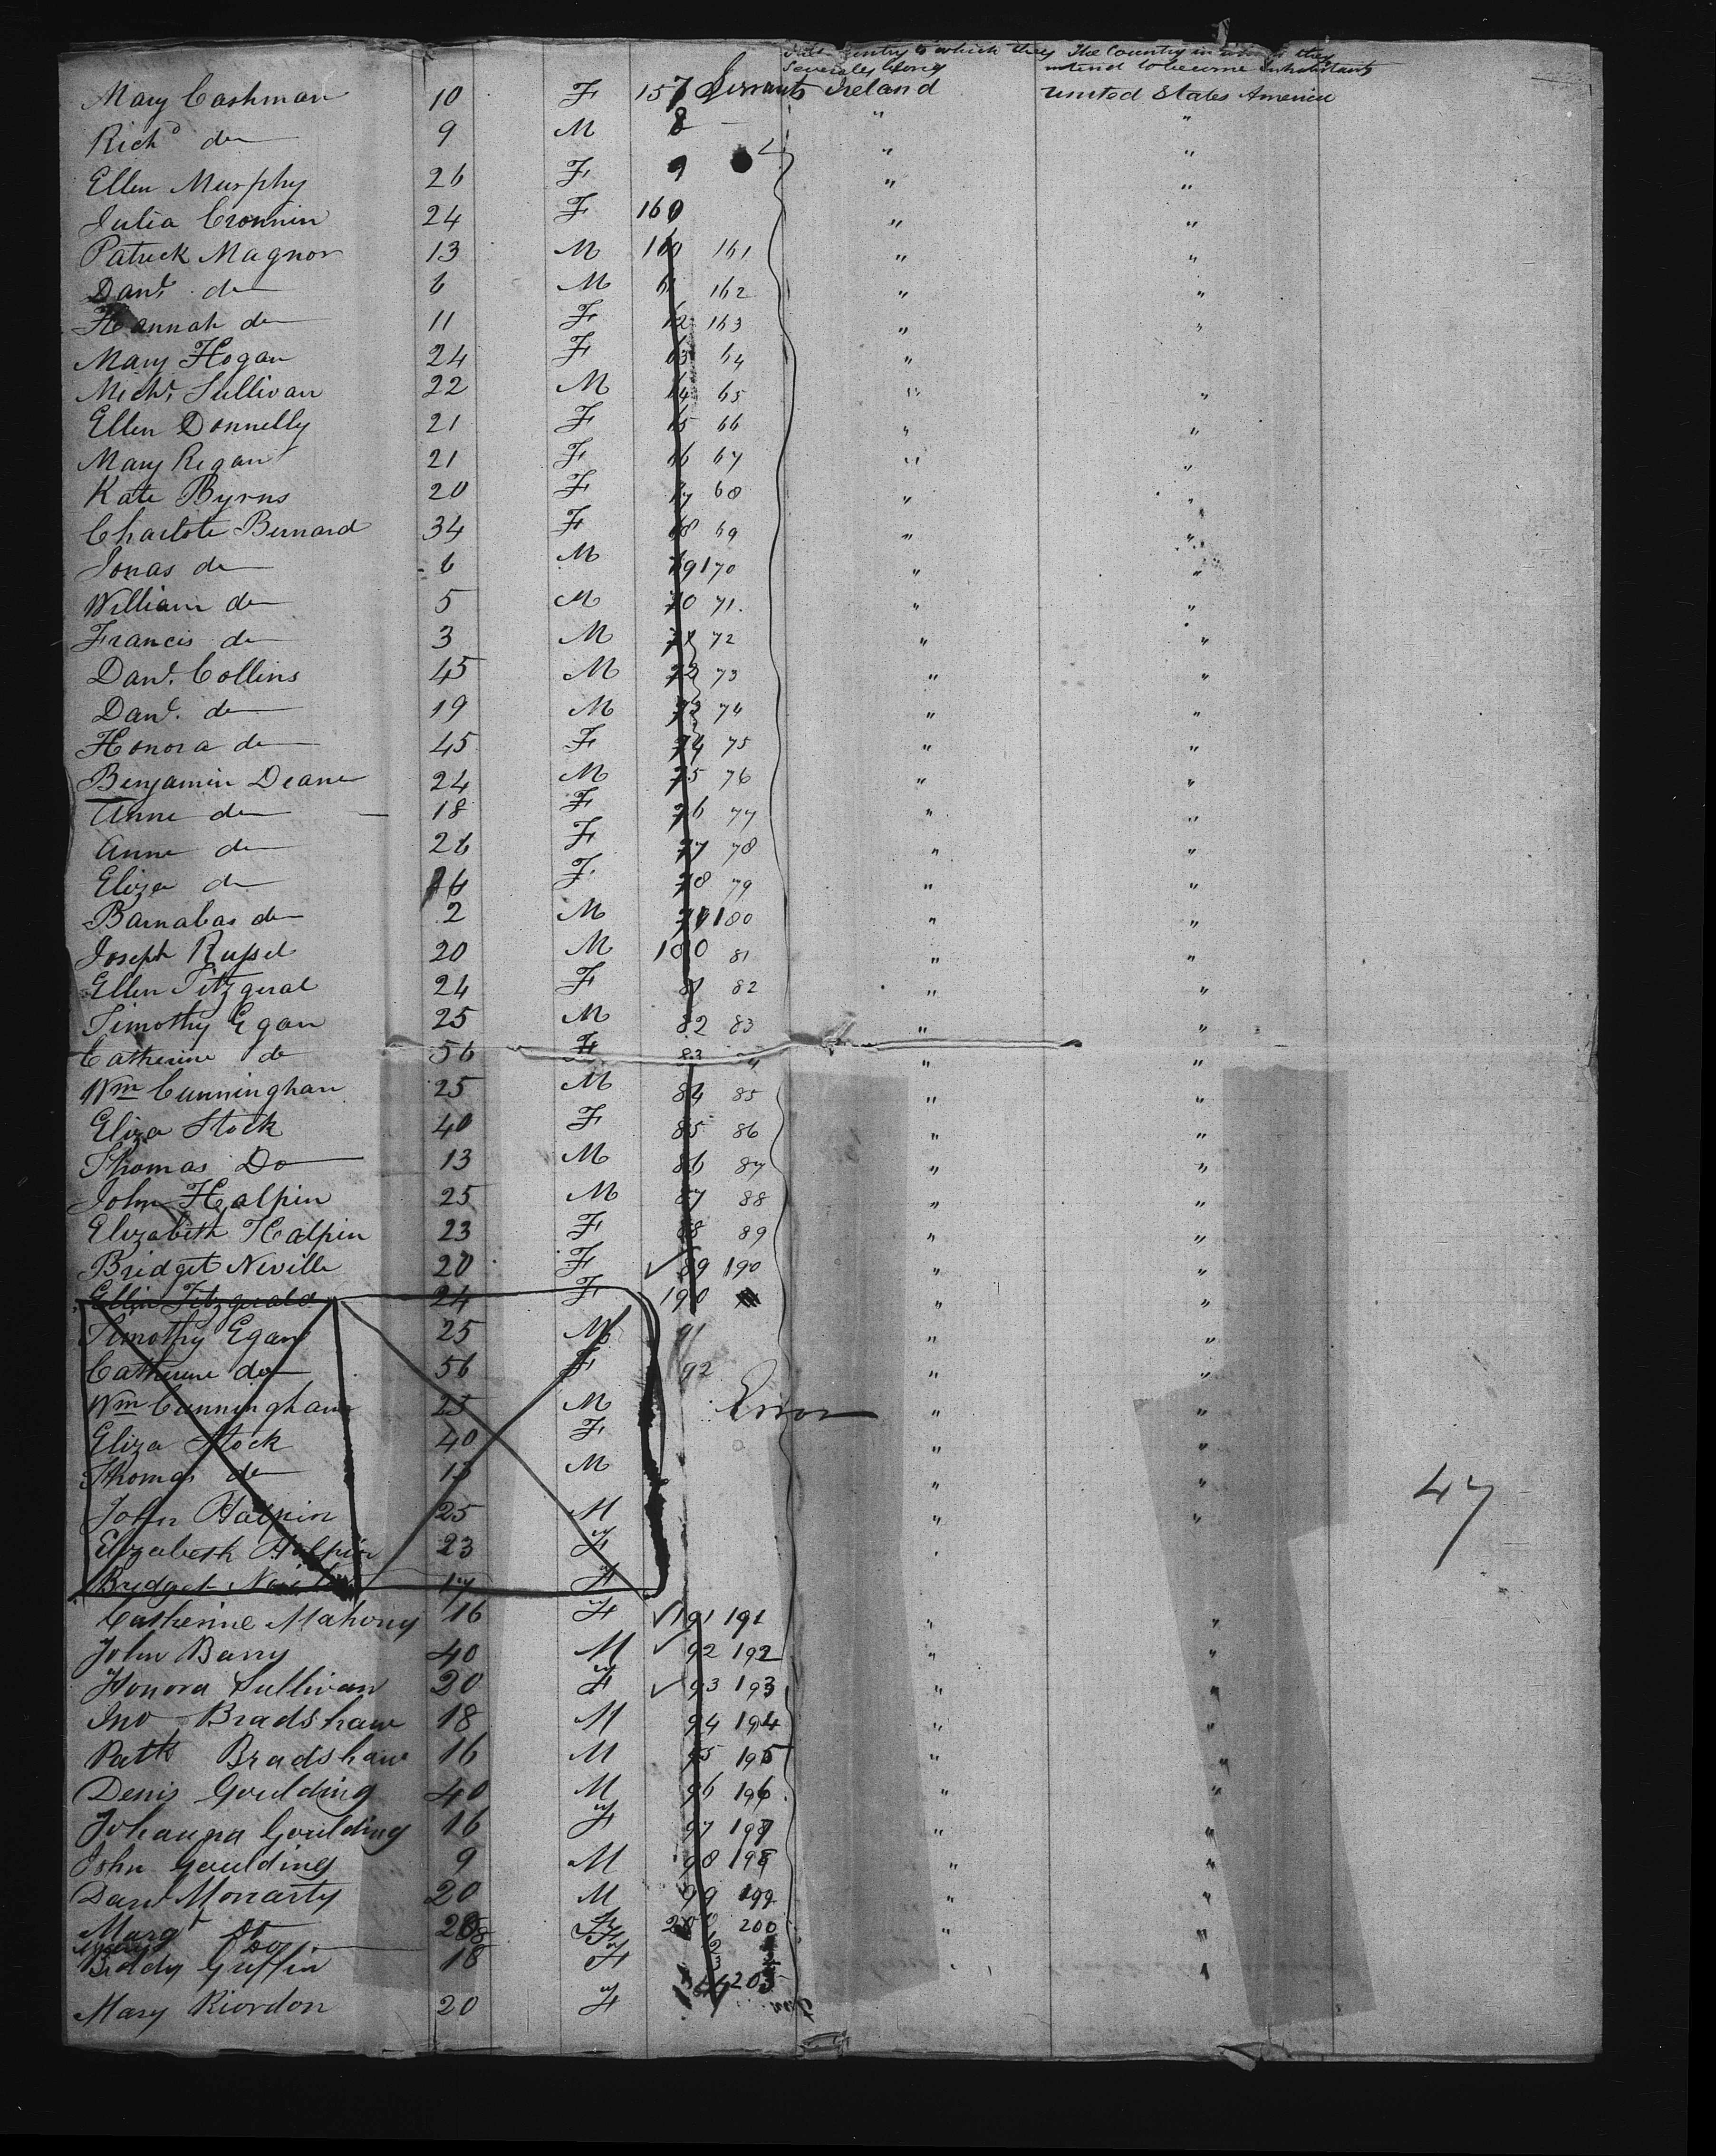 The Country to which they severally belong The Country in which they intend to become Inhabitants
Mary Cashman 10 F 157 Servants Ireland United States America
Richd do 9 M 8 " "
Ellen Murphy 26 F 9 " "
Julia Cronnin 24 F 160 " "
Patrick Magnor 13 M 160 161 " "
Danl do 6 M 61 162 " "
Hannah do 11 F 62 163 " "
Mary Hogan 24 F 63 64 " "
Michl Sullivan 22 M 64 65 " "
Ellen Donnelly 21 F 65 66 " "
Mary Regan 21 F 66 67 " "
Kate Byrns 20 F 67 68 " "
Charlote Bernard 34 F 68 69 " "
Jonas do 6 M 69 170 " "
William do 5 M 70 71 " "
Francis do 3 M 71 72 " "
Danl Collins 45 M 72 73 " "
Danl do 19 M 73 74 " "
Honora do 45 F 74 75 " "
Benjamin Deane 24 M 75 76 " "
Anne do 18 F 76 77 " "
Anne do 26 F 77 78 " "
Eliza do 16 F 78 79 " "
Barnabas do 2 M 79 180 " "
Joseph Russel 20 M 180 81 " "
Ellen Fitzgeral 24 F 81 82 " "
Timothy Egan 25 M 82 83 " "
Catherine do 56 F 83 " "
Wm Cunningham 25 M 84 85 " "
Eliza Stock 40 F 85 86 " "
Thomas Do 13 M 86 87 " "
John Halpin 25 M 87 88 " "
Elizabeth Halpin 23 F 88 89 " "
Bridget Neville 20 F 89 190 " "
Ellin Fitzgerald 24 F 190 " "
Timothy Egan 25 M 91 " "
Catherine do 56 F 92 " "
Wm Cunningham 25 M Error " "
Eliza Stock 40 F " "
Thomas do 13 M " "
John Halpin 25 M " "
Elizabeth Halpin 23 F
Bridget Neville 17 F
47
Catherine Mahony 16 F 191 191 " "
John Barry 40 M 92 192 " "
Honora Sullivan 20 F 93 193 " "
Jno Bradshaw 18 M 94 194 " "
Patk Bradshaw 16 M 95 195 " "
Denis Goulding 40 M 96 196 " "
Johanna Goulding 16 F 97 197 " "
John Goulding 9 M 98 198 " "
Danl Moriarty 20 M 99 199 " "
Margt Do 20 F 200 200 " "
Mary Do 18 F 2
Biddy Griffin 18 F 3 " "
Mary Riordon 20 F 203